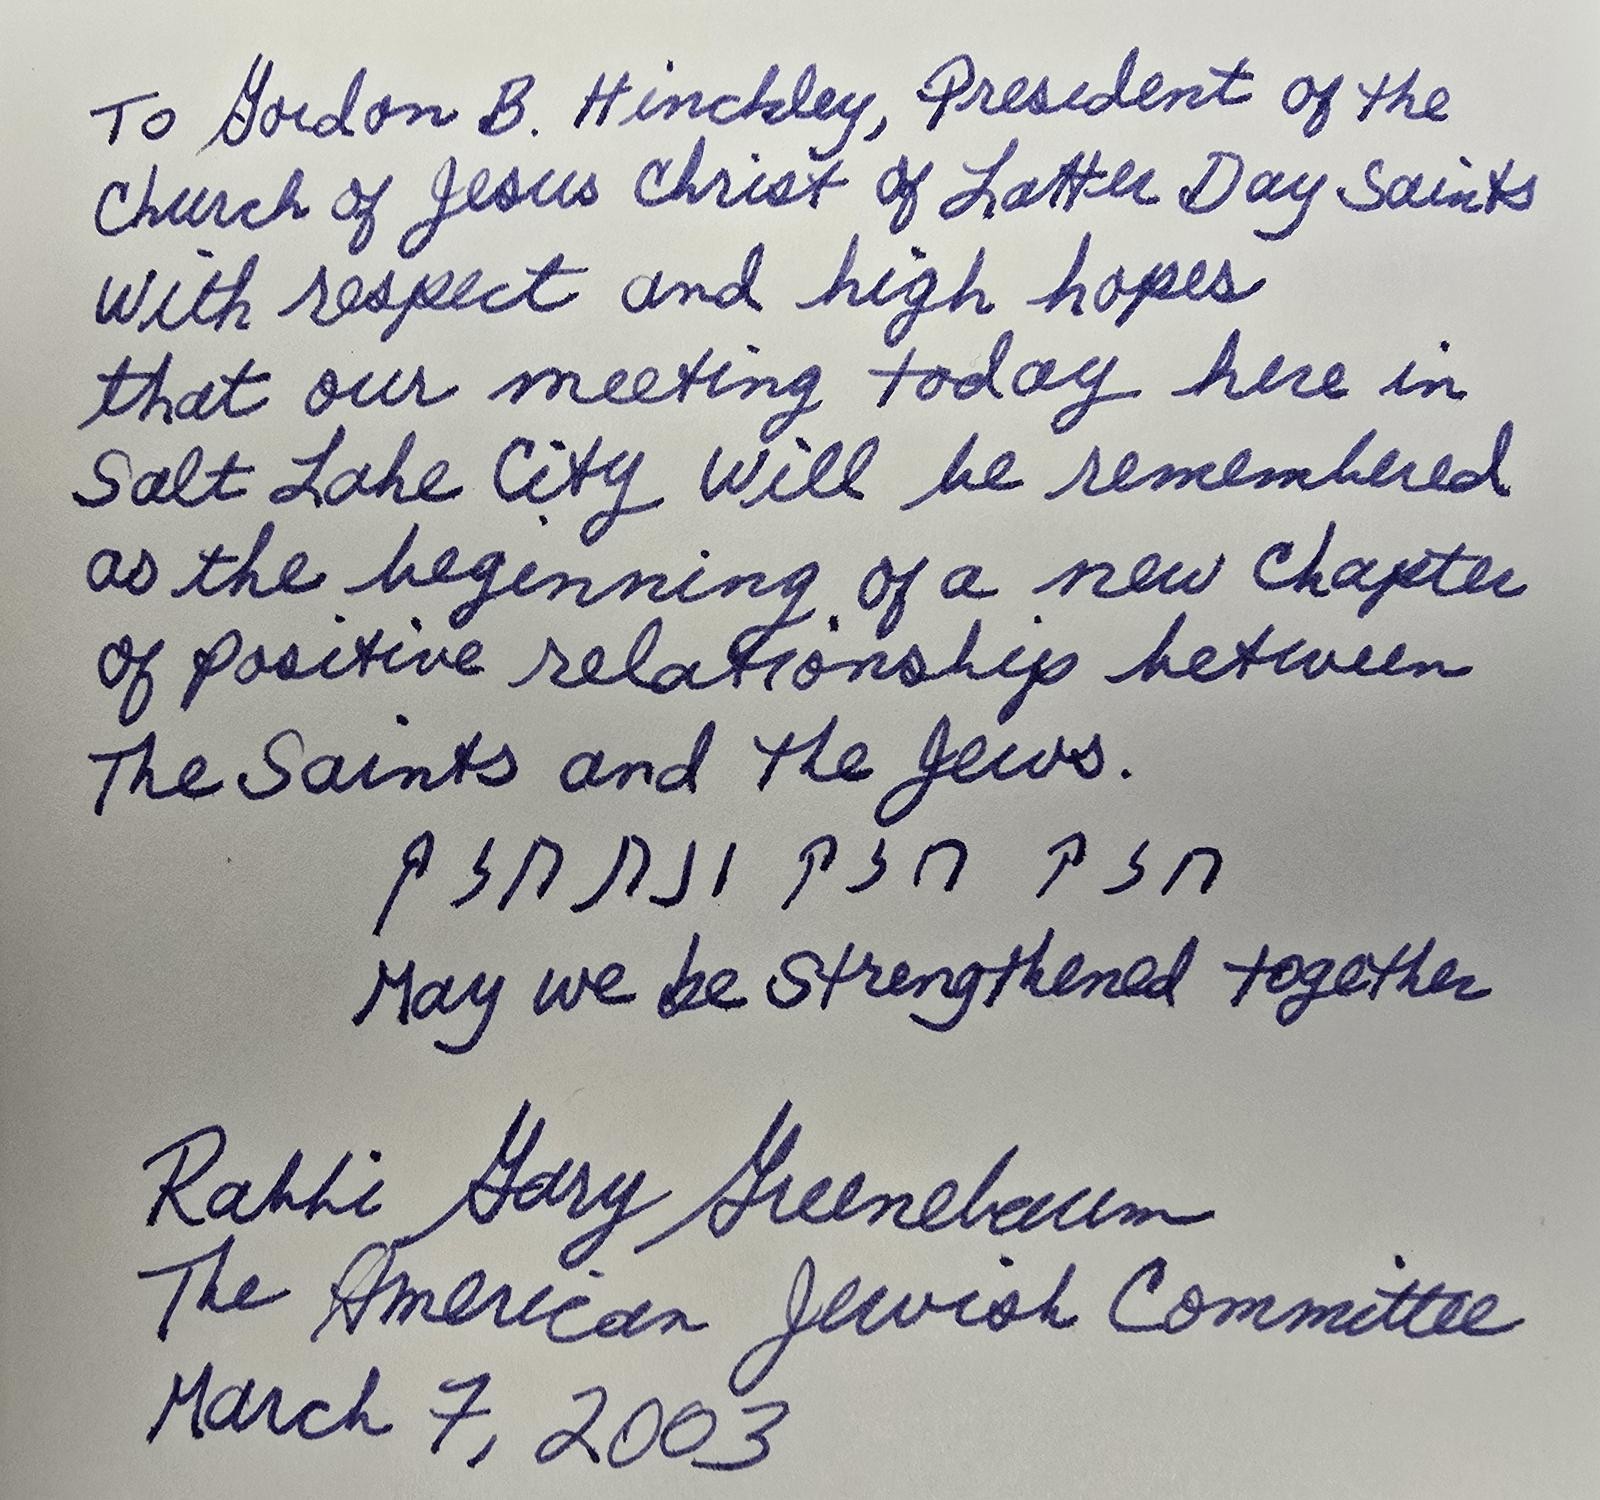 To Gordon B. Hinckley, President of the
Church of Jesus Christ of Latter Day Saints
With respect and high hopes
that our meeting today here in
Salt Lake City will be remembered
as the beginning of a new chapter
of positive relationship between
The Saints and the Jews.
חזק חזק ונתחזק
May we be strengthened together
Rabbi Gary Greenebaum
The American Jewish Committee
March 7, 2003